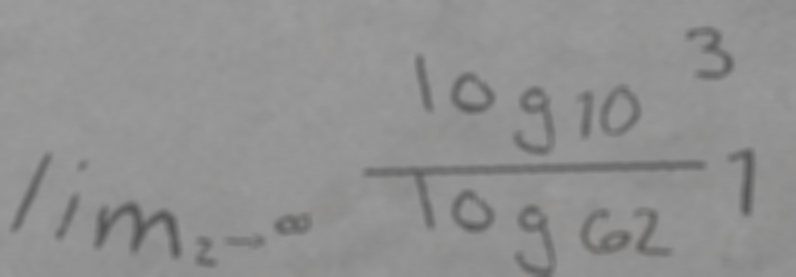 lim_{2→∞} \frac{log_{10} 3}{log_{62}} 1